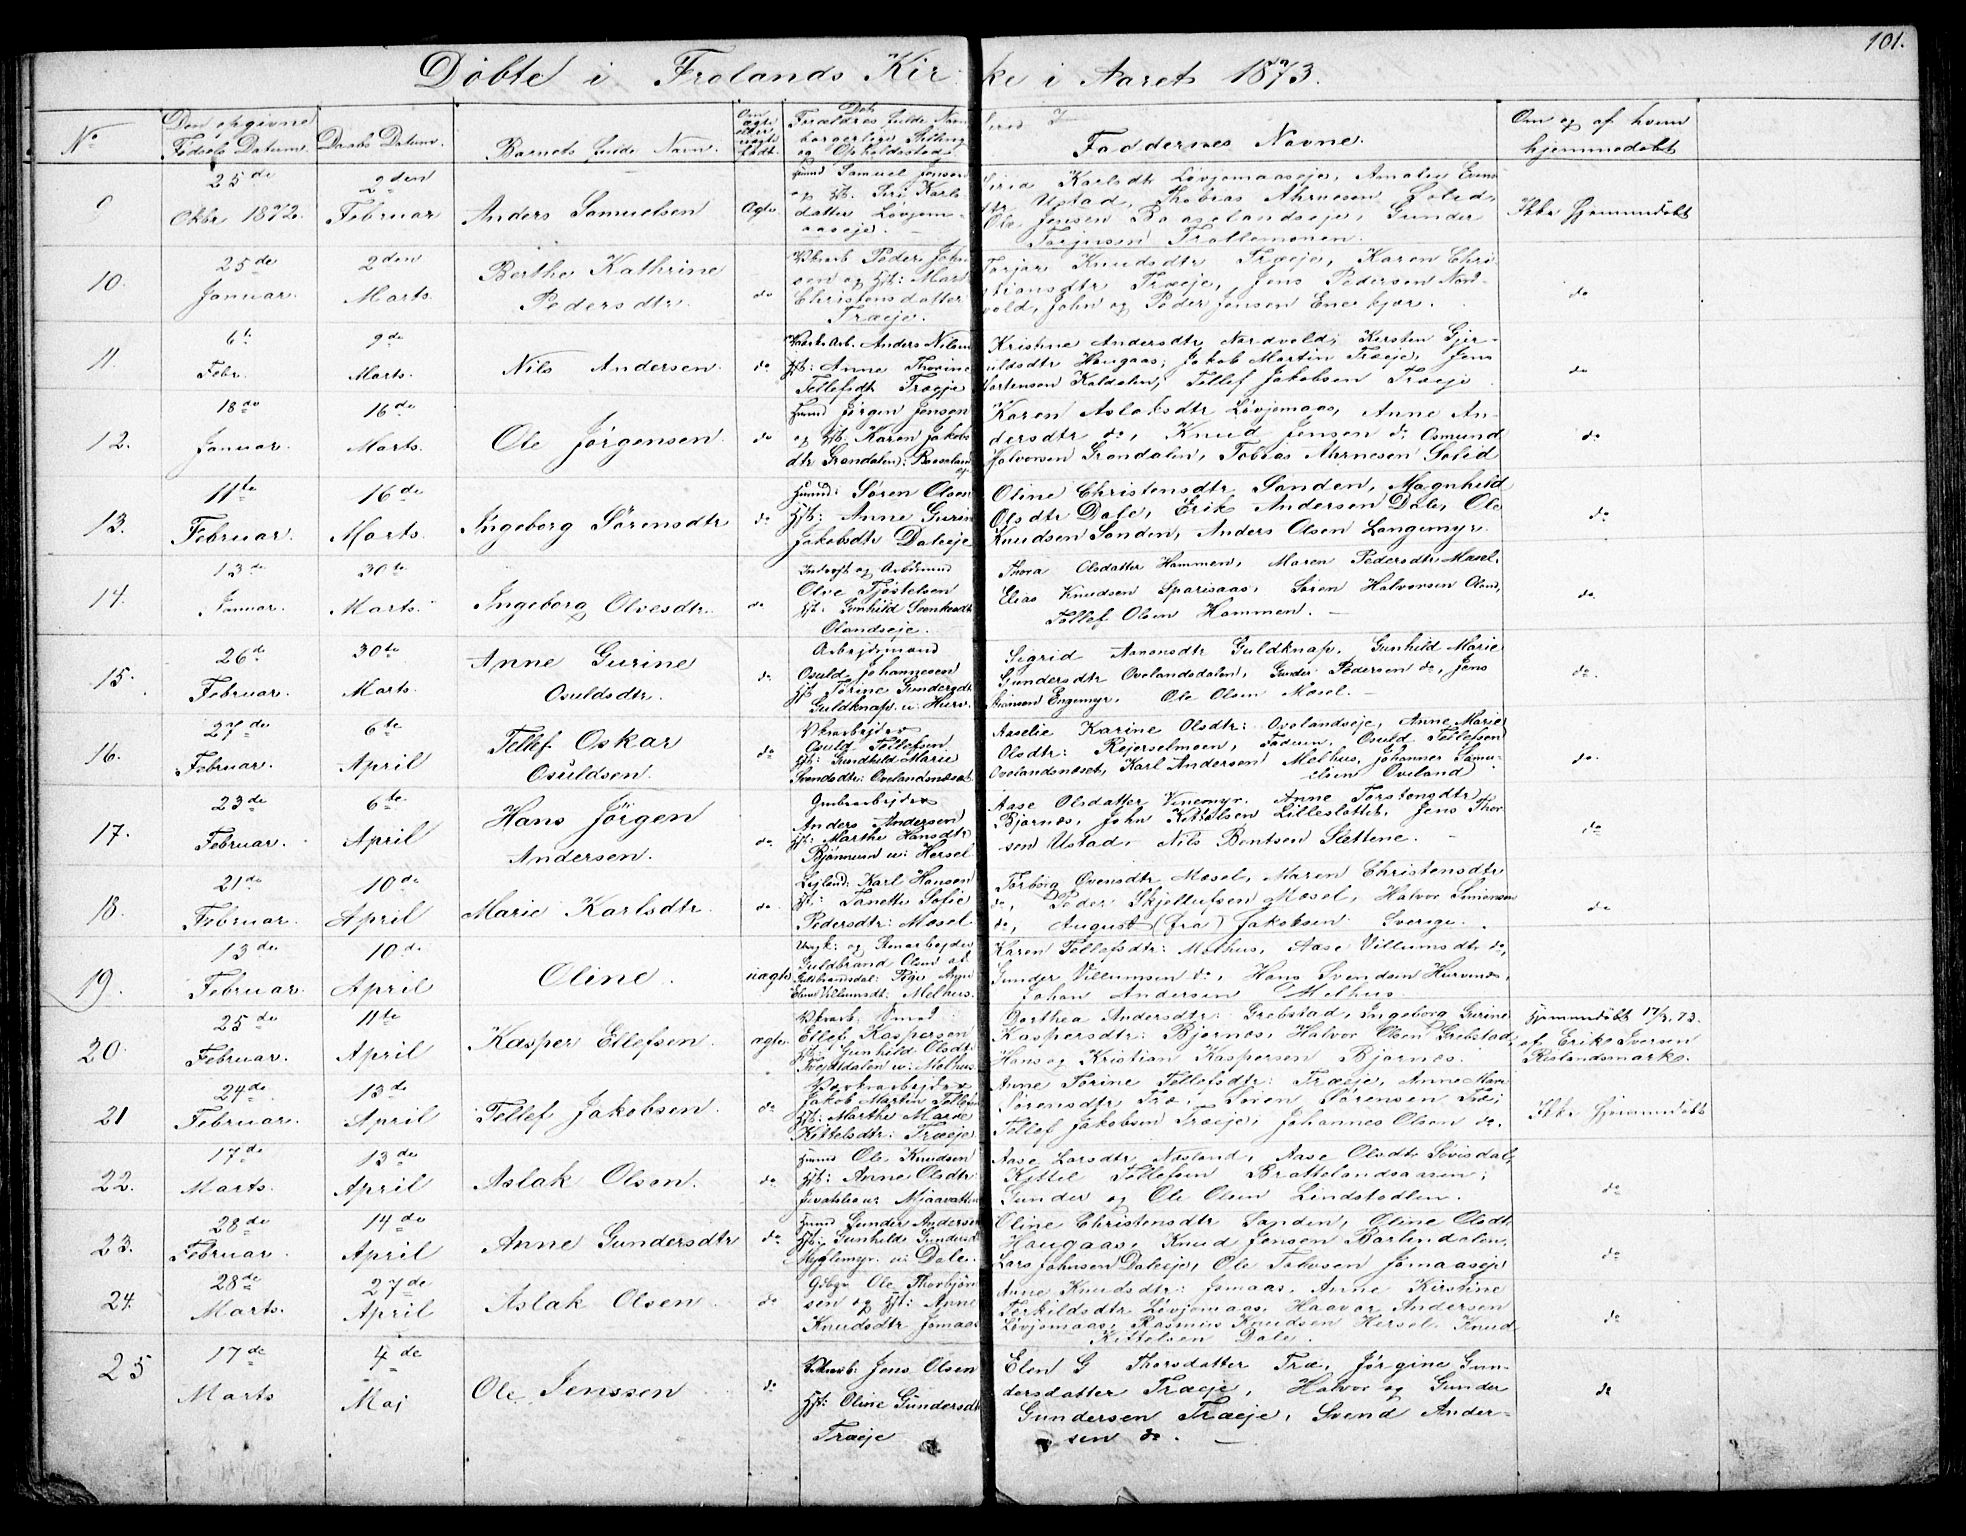 101.
Döbte i Frolands Kirke i Aaret 1873.
No
Den opgivne Fødsels Datum.
Daabs Datum.
Barnets fulde Navn.
Om ægte eller uægte født.
Forældres fulde Navn borgerlig Stilling og Opholdssted
Faddernes Navne.
Om og af hvem hjemmedøbt
9
25de Oktbr 1872.
2den Februar
Anders Samuelsen
Ægte
Huusmd Samuel Jensen
og Hst. Siri Karls
datter Lövjom-
aaseje.
Siria Karlsdtr Lövjomaaseje, Amalie Evens
dtr Ustad, Thobias Ahrnesen Solid,
Ole Jensen Baaselandseje, Gunder
Terjusen Trollemonen.
Ikke hjemmedöbt
10.
25de Januar.
2den Marts.
Berthe Kathrine
Pedersdtr.
do
Vkarb Peder Jen
sen og Hst: Mart
Christensdatter
Træeje.
Torjer Knudsdtr Træeje, Karen Chri-
stiansdtr Træeje, Jens Pedersen Nord-
vold, John og Peder Jensen Enekjær.
do
11.
6te Febr.
9de Marts.
Nils Andersen.
do
Værks Arb. Anders Nilsen
Hst: Anne Thorine
Tellefsdt Træeje
Kristine Andersdtr Nordvold, Kirsten Gjer-
uldsdtr Haugaas, Jakob Martin Træeje, Jens
Mortensen Kaldalen, Tellef Jakobsen Træeje
do
12.
18de Januar.
16de Marts.
Ole Jørgensen
do
Huusmd Jørgen Jensen
og Hst. Karen Jakobs
dtr Grøndalen: Baaseland
Karen Aslaksdtr Lövjomaas, Anne An-
dersdtr do, Knud Jensen do, Osmund
Halvorsen Grøndalen, Tobias Ahrnesen Solid
do
13.
11te Februar.
16de Marts.
Ingeborg Sörensdtr
do
Huusmd: Søren Olsen
Hst: Anne Gurine
Jakobsdtr Daleeje
Oline Christensdtr Sanden, Magnhild
Olsdtr Dale, Erik Andersen Dale, Ole
Knudsen Sanden, Anders Olsen Langemyr.
do
14.
13de Januar.
30te Marts.
Ingeborg Olvesdtr.
do
Indvoft og Arbdsmd
Olve Tjöstelsen
Hst: Gunhild Svenkesdt
Olandseje.
Thora Olsdatter Hammen, Maren Pedersdtr Mæsel,
Elias Knudsen Sparisaas, Søren Halvorsen Oland,
Tellef Olsen Hammen.
do
15.
26de Februar.
30te Marts.
Anne Gurine
Osuldsdtr.
do
Arbejdsmand
Osuld Johannesen
Hst Torine Gundersdt
Guldknap u. Hurv.
Sigrid Aanonsdtr Guldknap, Gunhild Marie
Gundersdtr Ovelandsdalen, Gunder Pedersen do, Jens
Svensen Engemyr, Ole Olsen Mæsel.
do.
16.
27de Februar.
6te April
Tellef Oskar
Osuldsen.
do
Vkrarbejder
Osuld Tellefsen
Hst: Gundhild Marie
Svendsdtr: Ovelandsnæset
Aaselie Karine Olsdtr: Ovelandseje, Anne Marie
Olsdtr: Rejerselmoen, Fadrum, Osuld Tellefsen
Ovelandsnæset, Karl Andersen Mølhus, Johannes Samu-
elsen Oveland
do.
17.
23de Februar.
6te April
Hans Jörgen
Andersen.
do
Grubearbejder
Anders Andersen
Hst: Marthe Hansdtr
Bjönnesen u: Hersel
Aase Olsdatter Vinemyr, Anne Torstensdtr
Bjørnes, John Kittelsen Lilleslottet, Jens Thor
sen Ustad, Nils Bentsen Slettene.
do
18.
21de Februar.
10de April
Marie Karlsdtr.
do.
Lejlend: Karl Hansen
Hst: Tanette Sofie
Pedersdtr: Mæsel
Torborg Ovensdtr Mæsel, Maren Christensdtr
do, Peder Skjellufsen Mæsel, Halvor Simonsen
do, August (fra) Jakobsen Sverige.
do
19.
13de Februar.
10de April
Oline.
uægte
Ungk: og Jernarbejder
Guldbrand Olsen af
Guldbransdal: Pige Anne
Elene Villumsdt: Mølhus.
Karen Tellefsdtr: Mølhus, Aase Villumsdtr do,
Gunder Villumsen do, Hans Svendsen Hurvenes,
Johan Andersen Mølhus.
20.
25de Februar.
11te April
Kasper Ellefsen.
ægte.
Vkrarb: Smed
Ellef Kaspersen
Hst: Gunhild Olsdtr
Tveitdalen u: Mølhus.
Dorthea Andersdtr: Grebstad, Ingeborg Gurine
Kaspersdtr: Bjørnes, Halvor Olsen Grebstad,
Hans og Kristian Kaspersen Bjørnes.
Hjemmedöbt 17/3. 73.
af Erik Iversen
Rislandsmark.
21
24de Februar.
13de April
Tellef Jakobsen.
do
Værkarbejder
Jakob Martin Tellefsen
Hst: Marthe Marie
Kittelsdtr: Træeje
Anne Torine Tellefsdtr: Træeje, Anne Mari
Sørensdtr Træ, Søren Sørensen Træ,
Tellef Jakobsen Træeje, Johannes Olsen do.
Ikke hjemmedöbt
22.
17de Marts.
13de April
Aslak Olsen.
do.
Huusmd Ole Knudsen
Hst: Anne Olsdtr
Mjaavatten
Aase Larsdtr Næsland, Aase Olsdtr Sövisdal,
Kittel Tellefsen Brattelandsaasen,
Gunder og Ole Olsen Lindstodlen.
do
23.
28de Februar.
14de April
Anne Gundersdtr
do.
Huusd Gunder Andersen
Hst: Gunhild Gundersdt
Myglemyr. u. Dale.
Oline Christensdtr Sanden, Oline Olsdt
Haugaas, Knud Jensen Bartendalen,
Lars Johnsen Daleeje, Ole Salvesen Jomaaseje
do
24.
28de Marts.
27de April
Aslak Olsen.
do
Gdbgr Ole Thorbjörn
sen og Hst: Anne
Knudsdtr Jomaas
Anne Knudsdtr: Jomaas, Anne Kirstine
Terkildsdtr Lövjomaas, Haavor Andersen
Lövjomaas, Rasmus Knudsen Hersel. Knud
Kittelsen Dale.
do
25
17de Marts
4de Maj
Ole Jenssen
do
Vkrarb: Jens Olsen
Hst: Oline Gundersdt
Træeje
Elen G Thorsdatter Træ, Jørgine Gun-
dersdatter Træeje, Halvor og Gunder
Gundersen Træeje, Svend Ander-
sen do.
do